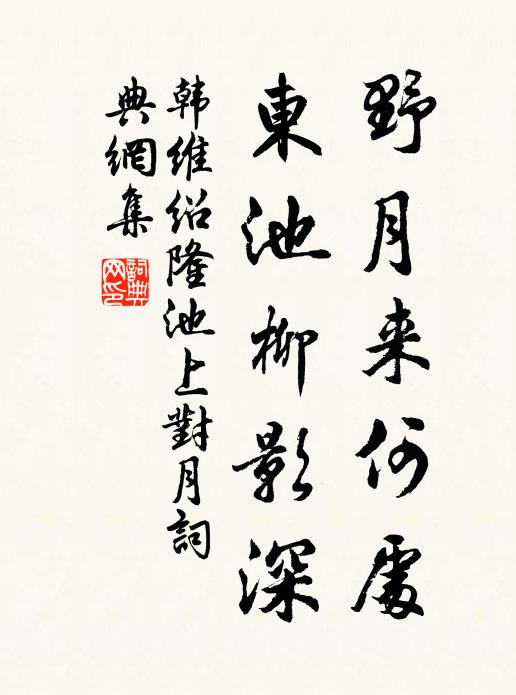 野月来何處
東池柳影深
韩維紹隆池上對月詞
典網集
詞典
网印